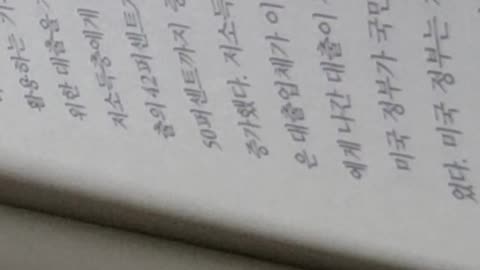 활용하는
위한 대출을
저소득층에게
출의 42퍼센트가
50퍼센트까지 증
증가했다. 저소득
은 대출업체가 이
에게 나간 대출이
미국 정부가 국민
있다. 미국 정부는